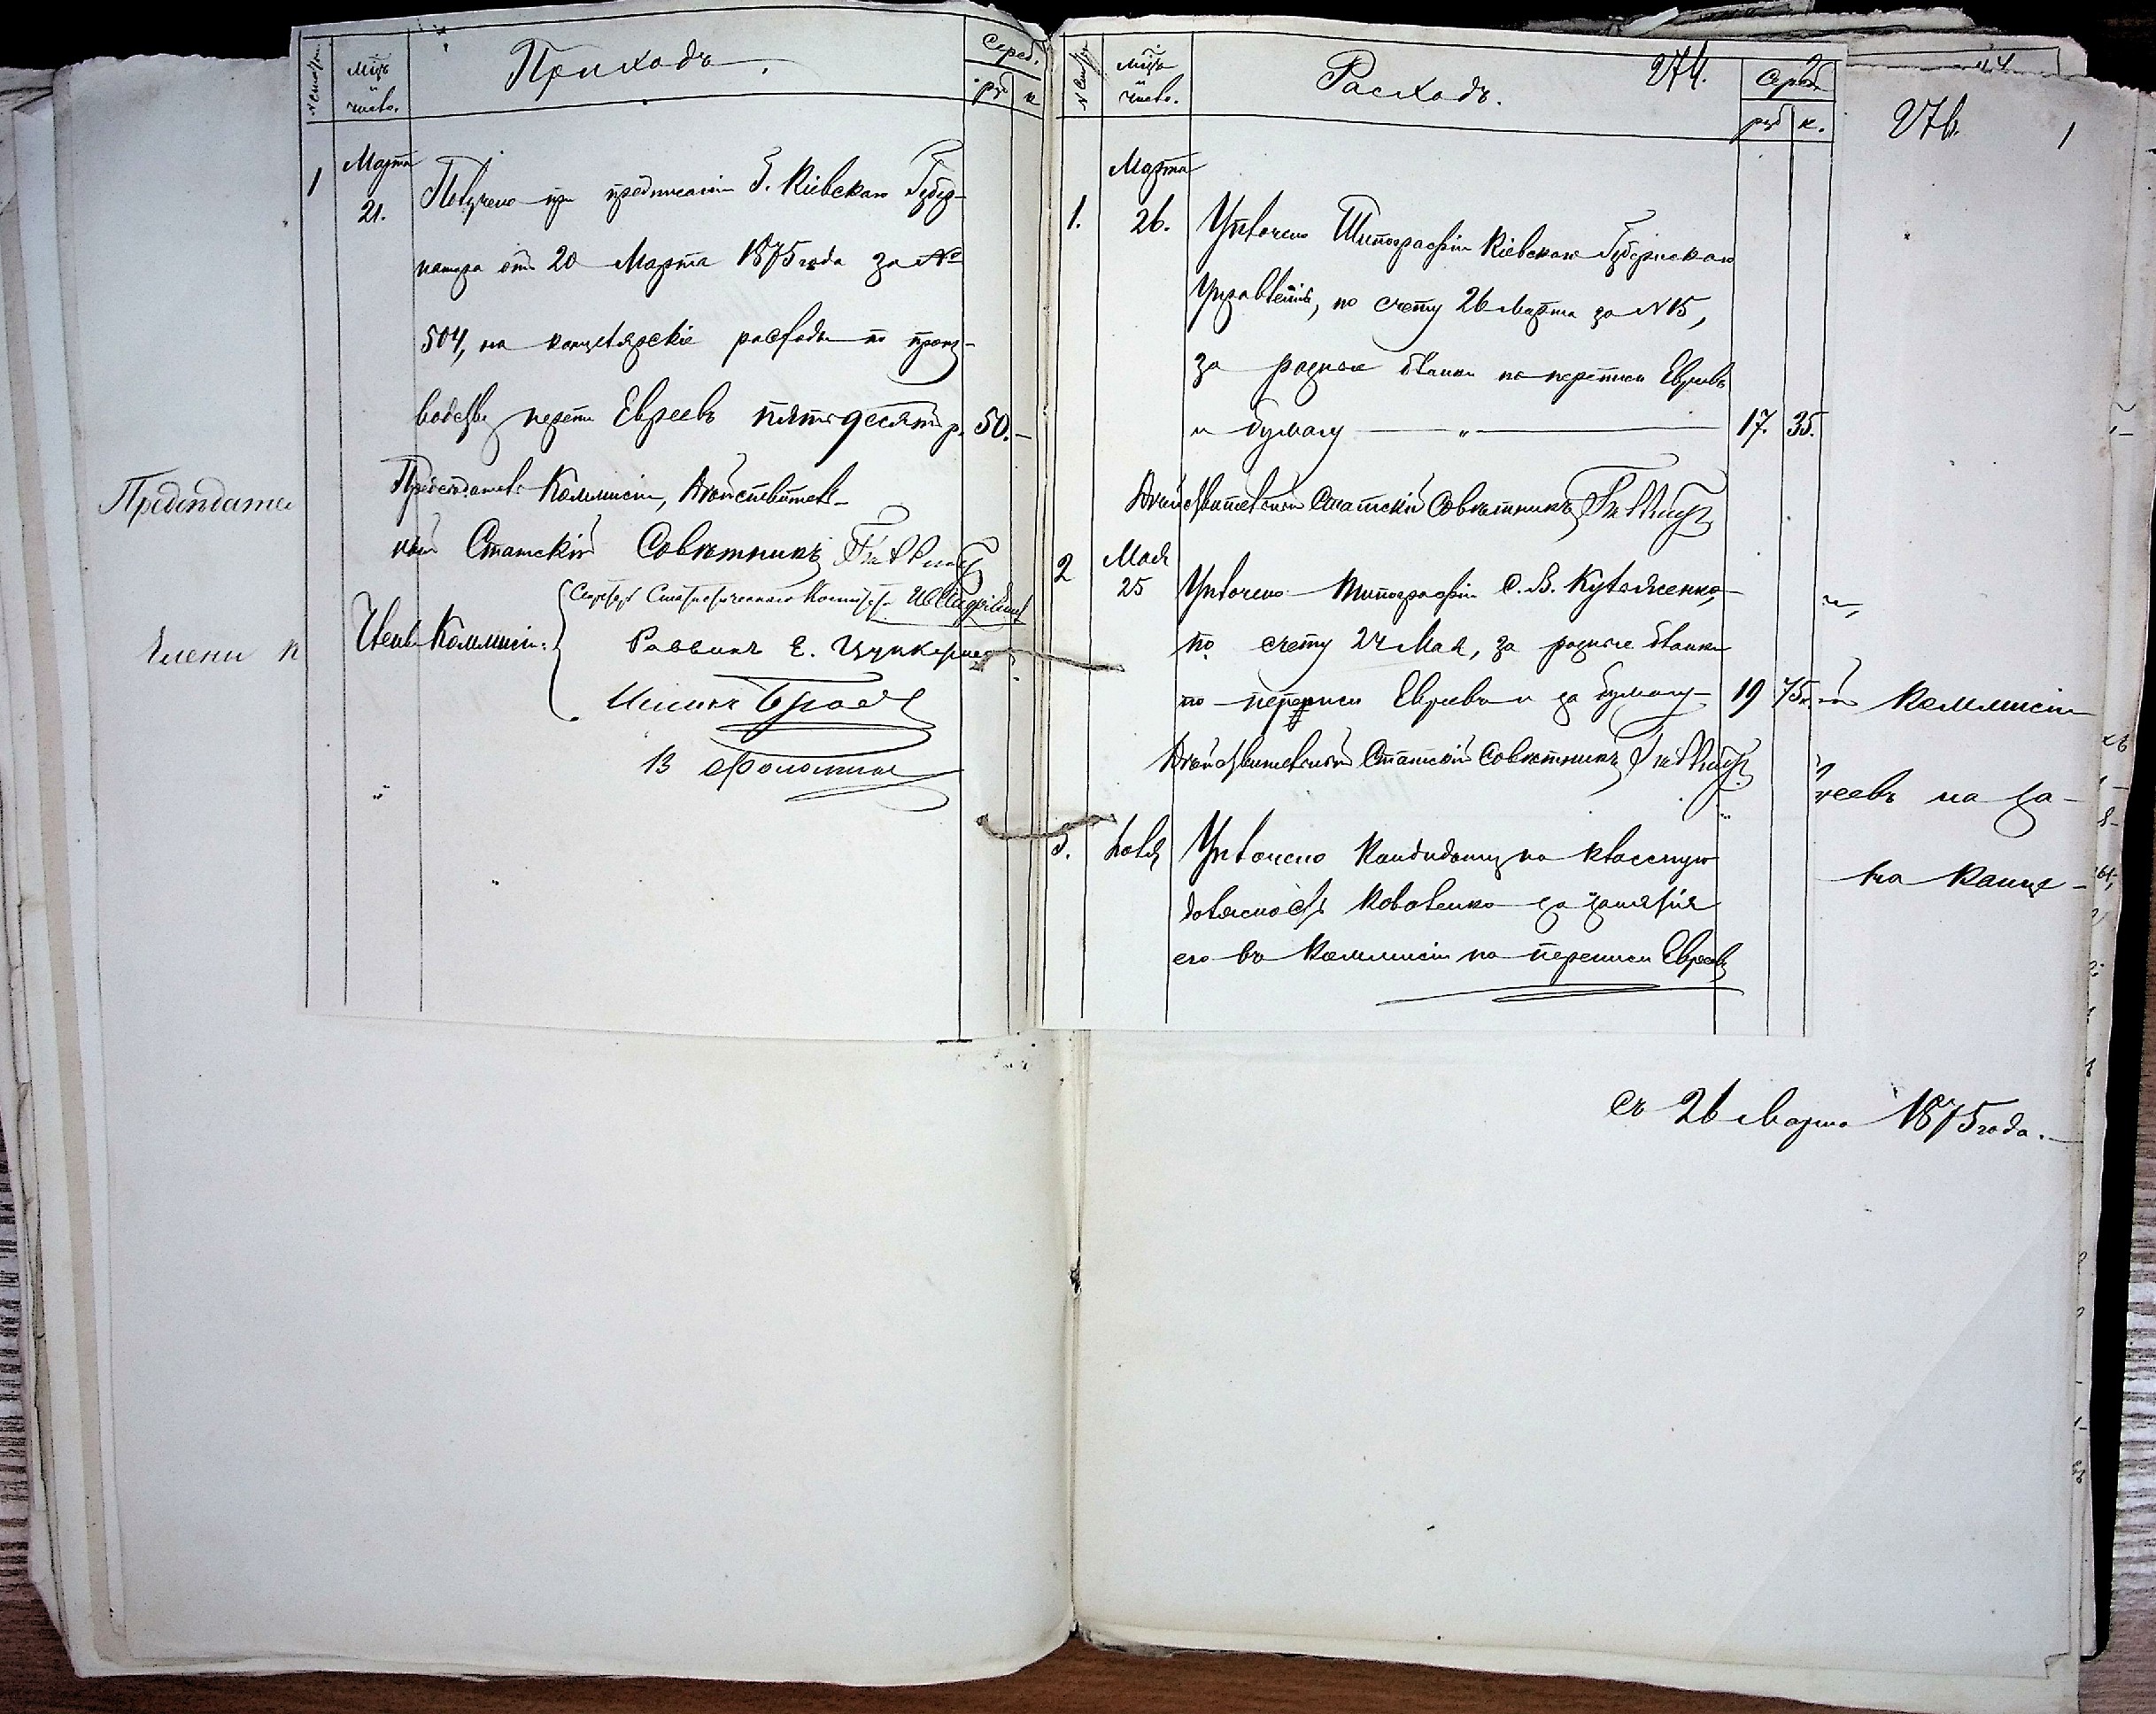 № статьи. Мцъ и число. Приходъ. Сереб.
руб к
1 Марта 21. Получено при предписаніи Г. Кіевскаго Губер-
натора отъ 20 Марта 1875 года за №
504, на канцелярскіе расходы по произ-
водству переписи Евреевъ пятьдесятъ р. 50. —
Предсѣдатель Коммисіи, Дѣйствитель-
ный Статскій Совѣтникъ
Секретарь Статистическаго Комитета
Члены Коммисіи: Раввинъ Е. Цуккерманъ
Бродс
Предсѣдате
Члены К
№ статьи Мцъ и число. Расходъ. 274. Сереб
руб к.
Марта
1. 26. Уплочено Типографіи Кіевскаго Губернскаго
Управленія, по счету 26 Марта за №15,
за разные бланки по переписи Евреевъ
и бумагу — „ — 17. 35.
Дѣйствительный Статскій Совѣтникъ
2 Мая 25 Уплочено Типографіи С. В. Кульженко,
по счету 24 Мая, за разные бланки
по переписи Евреевъ и за бумагу 19 75к.
Дѣйствительный Статскій Совѣтникъ
3. Уплочено Кандидату на классную
должность Коваленко за занятія
его въ Коммисіи по переписи Евреевъ
276. 1
й Коммисіи
реевъ на за-
на канце-
съ 26 Марта 1875 года.